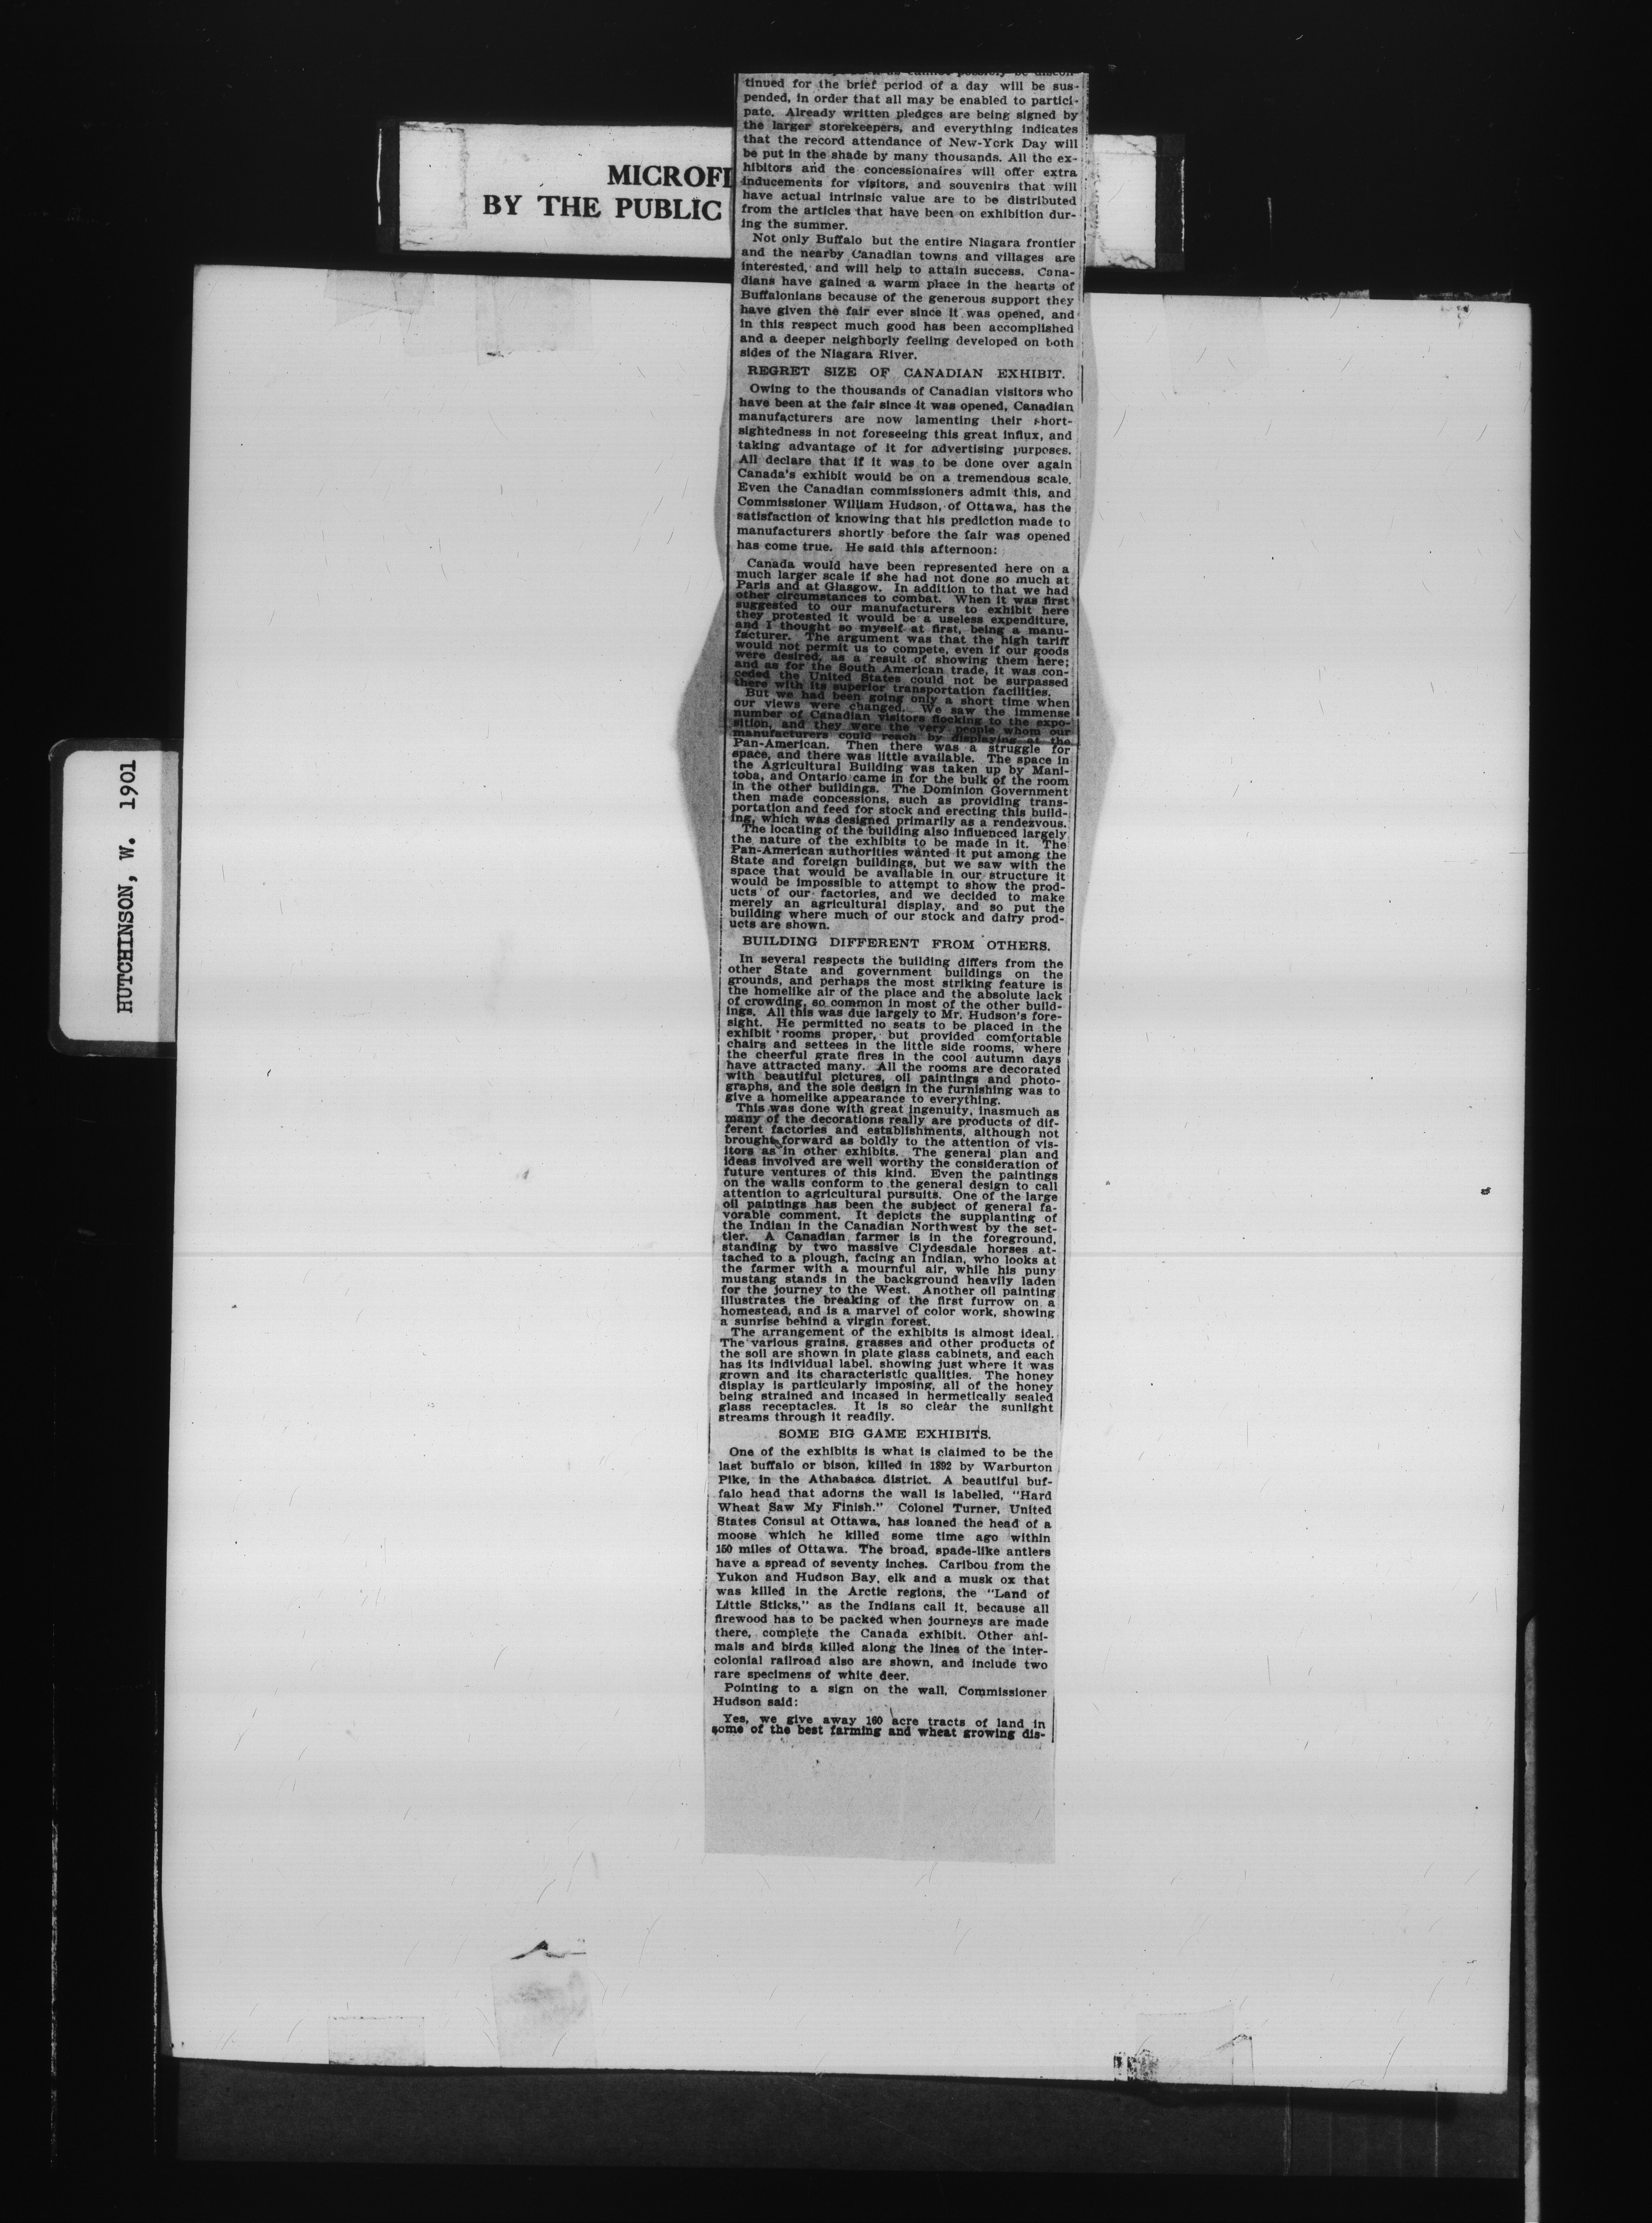 MICROFI
BY THE PUBLIC
HUTCHINSON, W. 1901
cannot possibly be discon-
tinued for the brief period of a day will be sus-
pended, in order that all may be enabled to partici-
pate. Already written pledges are being signed by
the larger storekeepers, and everything indicates
that the record attendance of New-York Day will
be put in the shade by many thousands. All the ex-
hibitors and the concessionaires will offer extra
inducements for visitors, and souvenirs that will
have actual intrinsic value are to be distributed
from the articles that have been on exhibition dur-
ing the summer.
Not only Buffalo but the entire Niagara frontier
and the nearby Canadian towns and villages are
interested, and will help to attain success. Cana-
dians have gained a warm place in the hearts of
Buffalonians because of the generous support they
have given the fair ever since it was opened, and
in this respect much good has been accomplished
and a deeper neighborly feeling developed on both
sides of the Niagara River.
REGRET SIZE OF CANADIAN EXHIBIT.
Owing to the thousands of Canadian visitors who
have been at the fair since it was opened, Canadian
manufacturers are now lamenting their short-
sightedness in not foreseeing this great influx, and
taking advantage of it for advertising purposes.
All declare that if it was to be done over again
Canada's exhibit would be on a tremendous scale.
Even the Canadian commissioners admit this, and
Commissioner William Hudson, of Ottawa, has the
satisfaction of knowing that his prediction made to
manufacturers shortly before the fair was opened
has come true. He said this afternoon:
Canada would have been represented here on a
much larger scale if she had not done so much at
Paris and at Glasgow. In addition to that we had
other circumstances to combat. When it was first
suggested to our manufacturers to exhibit here
they protested it would be a useless expenditure,
and I thought so myself at first, being a manu-
facturer. The argument was that the high tariff
would not permit us to compete, even if our goods
were desired, as a result of showing them here;
and as for the South American trade, it was con-
ceded the United States could not be surpassed
there with its superior transportation facilities.
But we had been going only a short time when
our views were changed. We saw the immense
number of Canadian visitors flocking to the expo-
sition, and they were the very people whom our
manufacturers could reach by displaying at the
Pan-American. Then there was a struggle for
space, and there was little available. The space in
the Agricultural Building was taken up by Mani-
toba, and Ontario came in for the bulk of the room
in the other buildings. The Dominion Government
then made concessions, such as providing trans-
portation and feed for stock and erecting this build-
ing, which was designed primarily as a rendezvous.
The locating of the building also influenced largely
the nature of the exhibits to be made in it. The
Pan-American authorities wanted it put among the
State and foreign buildings, but we saw with the
space that would be available in our structure it
would be impossible to attempt to show the prod-
ucts of our factories, and we decided to make
merely an agricultural display, and so put the
building where much of our stock and dairy prod-
ucts are shown.
BUILDING DIFFERENT FROM OTHERS.
In several respects the building differs from the
other State and government buildings on the
grounds, and perhaps the most striking feature is
the homelike air of the place and the absolute lack
of crowding, so common in most of the other build-
ings. All this was due largely to Mr. Hudson's fore-
sight. He permitted no seats to be placed in the
exhibit rooms proper, but provided comfortable
chairs and settees in the little side rooms, where
the cheerful grate fires in the cool autumn days
have attracted many. All the rooms are decorated
with beautiful pictures, oil paintings and photo-
graphs, and the sole design in the furnishing was to
give a homelike appearance to everything.
This was done with great ingenuity, inasmuch as
many of the decorations really are products of dif-
ferent factories and establishments, although not
brought forward as boldly to the attention of vis-
itors as in other exhibits. The general plan and
ideas involved are well worthy the consideration of
future ventures of this kind. Even the paintings
on the walls conform to the general design to call
attention to agricultural pursuits. One of the large
oil paintings has been the subject of general fa-
vorable comment. It depicts the supplanting of
the Indian in the Canadian Northwest by the set-
tler. A Canadian farmer is in the foreground,
standing by two massive Clydesdale horses at-
tached to a plough, facing an Indian, who looks at
the farmer with a mournful air, while his puny
mustang stands in the background heavily laden
for the journey to the West. Another oil painting
illustrates the breaking of the first furrow on a
homestead, and is a marvel of color work, showing
a sunrise behind a virgin forest.
The arrangement of the exhibits is almost ideal.
The various grains, grasses and other products of
the soil are shown in plate glass cabinets, and each
has its individual label, showing just where it was
grown and its characteristic qualities. The honey
display is particularly imposing, all of the honey
being strained and incased in hermetically sealed
glass receptacles. It is so clear the sunlight
streams through it readily.
SOME BIG GAME EXHIBITS.
One of the exhibits is what is claimed to be the
last buffalo or bison, killed in 1892 by Warburton
Pike, in the Athabasca district. A beautiful buf-
falo head that adorns the wall is labelled, "Hard
Wheat Saw My Finish." Colonel Turner, United
States Consul at Ottawa, has loaned the head of a
moose which he killed some time ago within
150 miles of Ottawa. The broad, spade-like antlers
have a spread of seventy inches. Caribou from the
Yukon and Hudson Bay, elk and a musk ox that
was killed in the Arctic regions, the "Land of
Little Sticks," as the Indians call it, because all
firewood has to be packed when journeys are made
there, complete the Canada exhibit. Other ani-
mals and birds killed along the lines of the inter-
colonial railroad also are shown, and include two
rare specimens of white deer.
Pointing to a sign on the wall, Commissioner
Hudson said:
Yes, we give away 160 acre tracts of land in
some of the best farming and wheat growing dis-